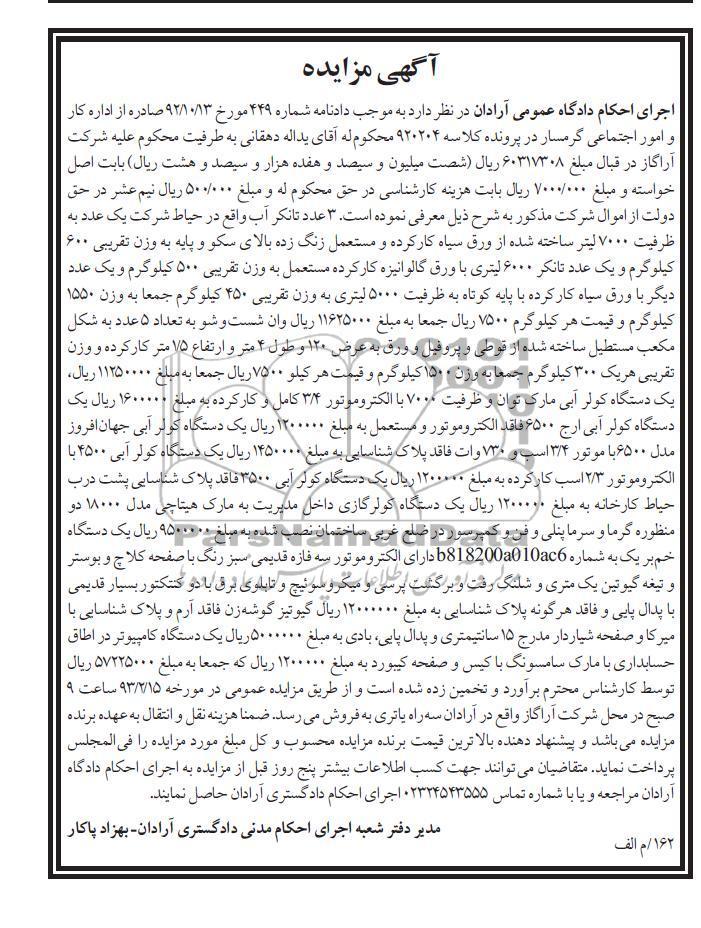 آگهی مزایده
اجرای احکام دادگاه عمومی آرادان در نظر دارد به موجب دادنامه شماره ۴۴۹ مورخ ۹۲/۱۰/۱۳ صادره از اداره کار
و امور اجتماعی گرمسار در پرونده کلاسه ۹۲۰۲۰۴ محکوم له آقای یداله دهقانی به طرفیت محکوم علیه شرکت
آراگاز در قبال مبلغ ۶۰۳۱۷۳۰۸ ریال (شصت میلیون و سیصد و هفده هزار و سیصد و هشت ریال) بابت اصل
خواسته و مبلغ ۷۰۰۰/۰۰۰ ریال بابت هزینه کارشناسی در حق محکوم له و مبلغ ۵۰۰/۰۰۰ ریال نیم عشر در حق
دولت از اموال شرکت مذکور به شرح ذیل معرفی نموده است. ۳ عدد تانکر آب واقع در حیاط شرکت یک عدد به
ظرفیت ۷۰۰۰ لیتر ساخته شده از ورق سیاه کارکرده و مستعمل زنگ زده بالای سکو و پایه به وزن تقریبی ۶۰۰
کیلوگرم و یک عدد تانکر ۶۰۰۰ لیتری با ورق گالوانیزه کارکرده مستعمل به وزن تقریبی ۵۰۰ کیلوگرم و یک عدد
دیگر با ورق سیاه کارکرده با پایه کوتاه به ظرفیت ۵۰۰۰ لیتری به وزن تقریبی ۴۵۰ کیلوگرم جمعا به وزن ۱۵۵۰
کیلوگرم و قیمت هر کیلوگرم ۷۵۰۰ ریال جمعا به مبلغ ۱۱۶۲۵۰۰۰ ریال وان شست و شو به تعداد ۵ عدد به شکل
مکعب مستطیل ساخته شده از قوطی و پروفیل و ورق به عرض ۱۲۰ و طول ۴ متر و ارتفاع ۱/۵ متر کارکرده و وزن
تقریبی هر یک ۳۰۰ کیلوگرم جمعا به وزن ۱۵۰۰ کیلوگرم و قیمت هر کیلو ۷۵۰۰ ریال جمعا به مبلغ ۱۱۲۵۰۰۰۰ ریال،
یک دستگاه کولر آبی مارک توان و ظرفیت ۷۰۰۰ با الکتروموتور ۳/۴ کامل و کارکرده به مبلغ ۱۶۰۰۰۰۰ ریال یک
دستگاه کولر آبی ارج ۶۵۰۰ فاقد الکتروموتور و مستعمل به مبلغ ۱۲۰۰۰۰۰ ریال یک دستگاه کولر آبی جهان افروز
مدل ۶۵۰۰ با موتور ۳/۴ اسب و ۷۳۰ وات فاقد پلاک شناسایی به مبلغ ۱۴۵۰۰۰۰ ریال یک دستگاه کولر آبی ۴۵۰۰ با
الکتروموتور ۲/۳ اسب کارکرده به مبلغ ۱۲۰۰۰۰۰ ریال یک دستگاه کولر آبی ۳۵۰۰ فاقد پلاک شناسایی پشت درب
حیاط کارخانه به مبلغ ۱۲۰۰۰۰۰ ریال یک دستگاه کولر گازی داخل مدیریت به مارک هیتاچی مدل ۱۸۰۰۰ دو
منظوره گرما و سرما پنلی و فن و کمپرسور در ضلع غربی ساختمان نصب شده به مبلغ ۹۵۰۰۰۰۰ ریال یک دستگاه
خم بر یک به شماره b818200a010ac6 دارای الکتروموتور سه فازه قدیمی سبز رنگ با صفحه کلاچ و بوستر
و تیغه گیوتین یک متری و شلنگ رفت و برگشت پرسی و میکروسوئیچ و تابلوی برق با دو کنتکتور بسیار قدیمی
با پدال پایی و فاقد هرگونه پلاک شناسایی به مبلغ ۱۲۰۰۰۰۰۰ ریال گیوتیز گوشه زن فاقد آرم و پلاک شناسایی با
میرکا و صفحه شیاردار مدرج ۱۵ سانتیمتری و پدال پایی، بادی به مبلغ ۵۰۰۰۰۰۰ ریال یک دستگاه کامپیوتر در اطاق
حسابداری با مارک سامسونگ با کیس و صفحه کیبورد به مبلغ ۱۲۰۰۰۰۰ ریال که جمعا به مبلغ ۵۷۲۲۵۰۰۰ ریال
توسط کارشناس محترم برآورد و تخمین زده شده است و از طریق مزایده عمومی در مورخه ۹۳/۲/۱۵ ساعت ۹
صبح در محل شرکت آراگاز واقع در آرادان سه راه یاتری به فروش می رسد. ضمنا هزینه نقل و انتقال به عهده برنده
مزایده می باشد و پیشنهاد دهنده بالاترین قیمت برنده مزایده محسوب و کل مبلغ مورد مزایده را فی المجلس
پرداخت نماید. متقاضیان می توانند جهت کسب اطلاعات بیشتر پنج روز قبل از مزایده به اجرای احکام دادگاه
آرادان مراجعه و یا با شماره تماس ۰۲۳۲۴۵۴۳۵۵۵ اجرای احکام دادگستری آرادان حاصل نمایند.
مدیر دفتر شعبه اجرای احکام مدنی دادگستری آرادان-بهزاد پاکار
۱۶۲/م الف
ParsNamadData